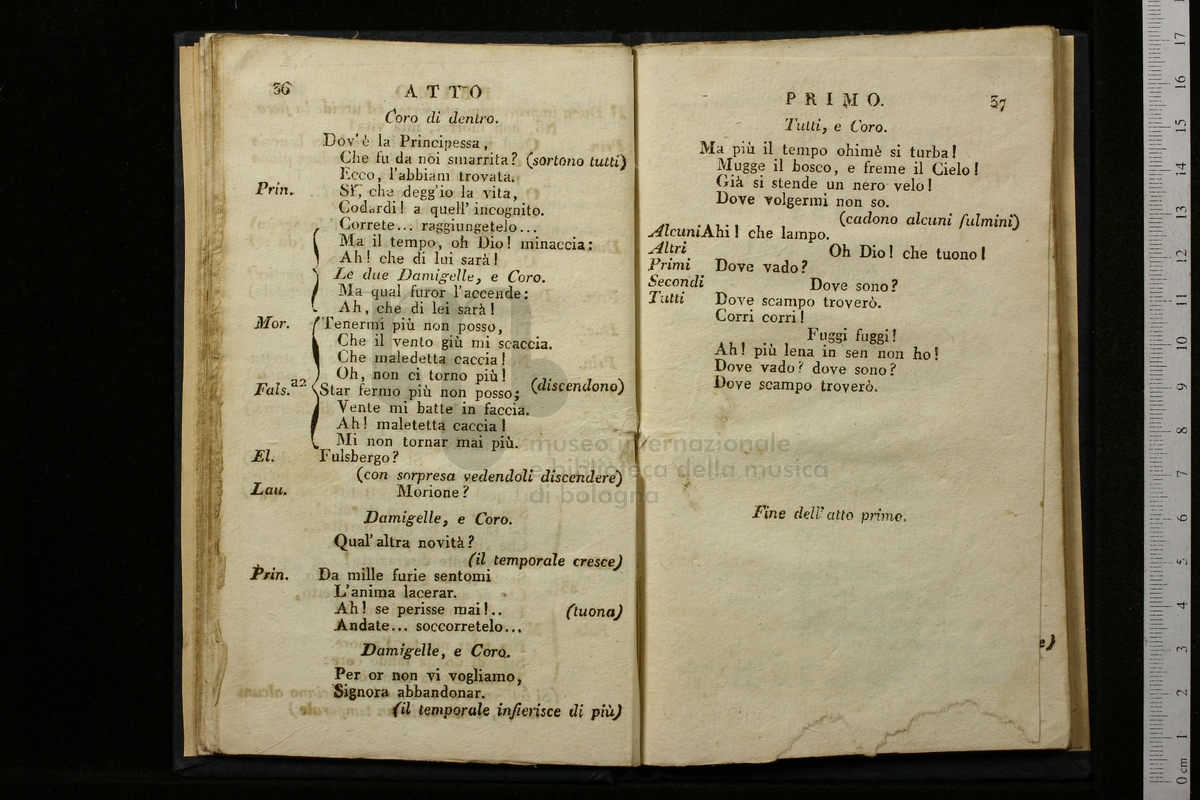 36
ATTO
Coro di dentro.
Dov'è la Principessa,
Che fu da noi smarrita? (sortono tutti)
Ecco, l'abbiam trovata.
Prin. SI, che degg'io la vita,
Codardi! a quell' incognito.
Correte... raggiungetelo...
Ma il tempo, oh Dio! minaccia:
Ah! che di lui sarà!
Le due Damigelle, e Coro.
Ma qual furor l'accende:
Ah, che di lei sarà!
Mor. Tenermi più non posso,
Che il vento giù mi scaccia.
Che maledetta caccia!
Oh, non ci torno più! (discendono)
a2
Fals. Star fermo più non posso;
Vente mi batte in faccia.
Ah! maletetta caccia!
Mi non tornar mai più.
El. Fulsbergo?
(con sorpresa vedendoli discendere)
Lau. Morione?
Damigelle, e Coro.
Qual' altra novità?
(il temporale cresce)
Prin. Da mille furie sentomi
L'anima lacerar.
Ah! se perisse mai!.. (tuona)
Andate... soccorretelo...
Damigelle, e Coro.
Per or non vi vogliamo,
Signora abbandonar.
(il temporale infierisce di più)
PRIMO.
37
Tutti, e Coro.
Ma più il tempo ohimè si turba!
Mugge il bosco, e freme il Cielo!
Già si stende un nero velo!
Dove volgermi non so.
(cadono alcuni fulmini)
Alcuni Ahi! che lampo.
Altri Oh Dio! che tuono!
Primi Dove vado?
Secondi Dove sono?
Tutti Dove scampo troverò.
Corri corri!
Fuggi fuggi!
Ah! più lena in sen non ho!
Dove vado? dove sono?
Dove scampo troverò.
Fine dell' atto primo.
e)
museo internazionale
e biblioteca della musica
di bologna
0 cm 1 2 3 4 5 6 7 8 9 10 11 12 13 14 15 16 17